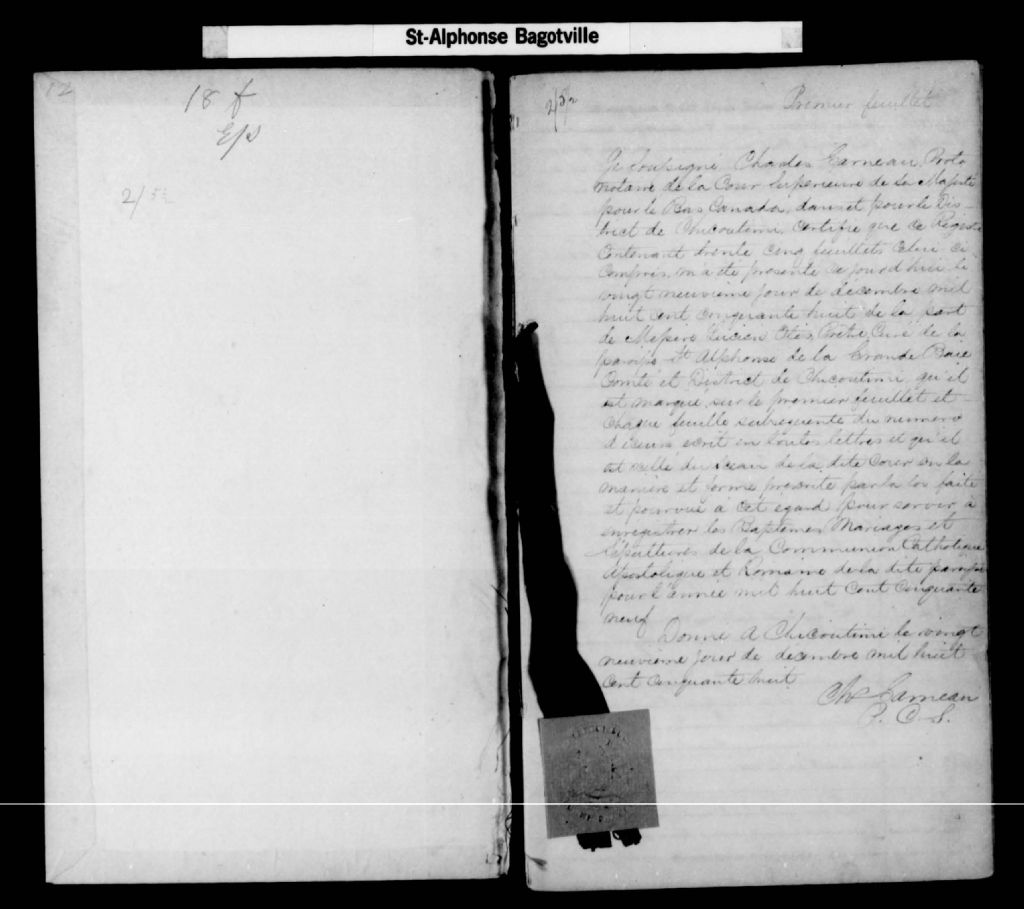 St-Alphonse Bagotville
12
18 f
2/
Premier feuillet
Je soussigné Charles Garneau, Proto
notaire de la Cour Supérieure de Sa Majesté
pour le Bas Canada, dans et pour le Dis-
trict de Chicoutimi, certifie que ce Registre
Contenant trente cinq feuillets celui ci
compris, m'a été présenté ce jourd'hui le
vingt neuvième jour de décembre mil
huit cent cinquante huit de la part
de Messire Lucien Otis, Prêtre, Curé de la
paroisse St Alphonse de la Grande Baie
Comté et District de Chicoutimi, qu'il
est marqué sur le premier feuillet et
chaque feuille subséquente du numero
d'iceux écrit en toutes lettres et qu'il
est scellé du sceau de la dite Cour en la
manière et forme prescrite par la loi faite
et pourvue à cet égard pour servir à
enregistrer les Baptêmes Mariages et
Sépultures de la Communion Catholique
Apostolique et Romaine de la dite paroisse
pour l'année mil huit cent cinquante
neuf
Donné à Chicoutimi le vingt
neuvième jour de décembre mil huit
cent cinquante huit.
Chs Garneau
P. C. S.